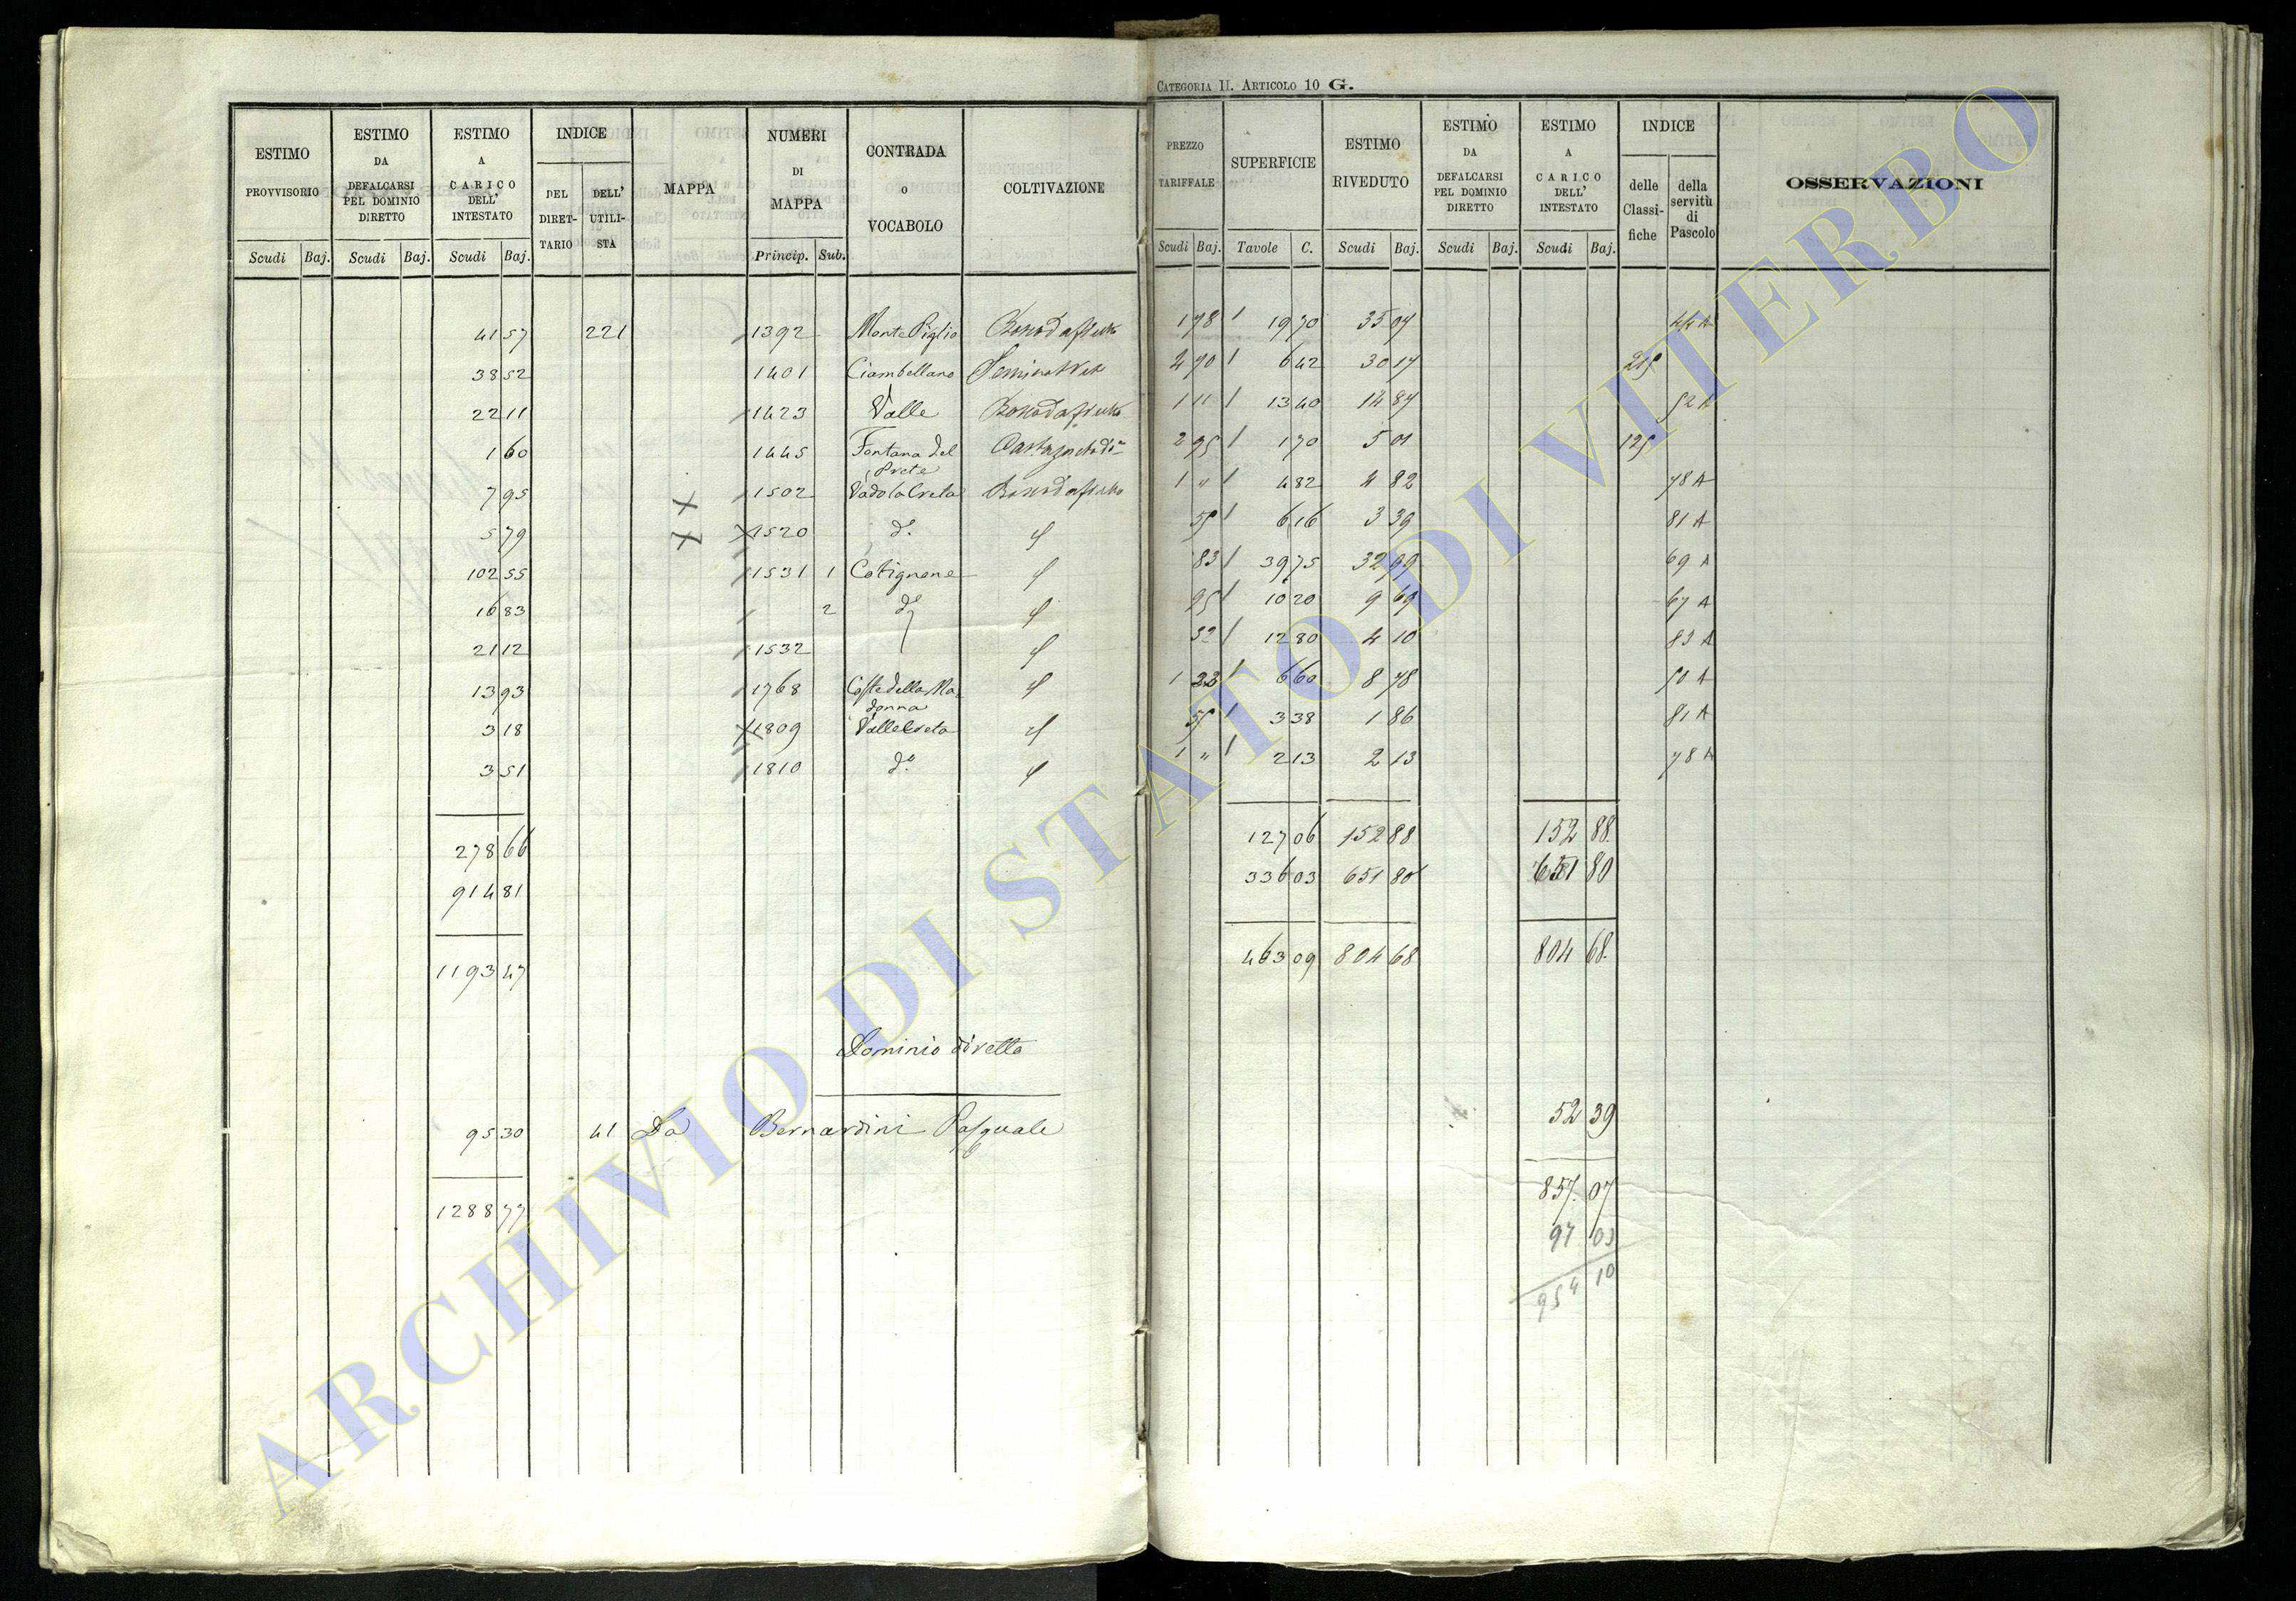 CATEGORIA II. ARTICOLO 10 G.
ESTIMO PROVVISORIO | ESTIMO DA DEFALCARSI PEL DOMINIO DIRETTO | ESTIMO A CARICO DELL' INTESTATO | INDICE | MAPPA | NUMERI DI MAPPA | CONTRADA o VOCABOLO | COLTIVAZIONE | PREZZO TARIFFALE | SUPERFICIE | ESTIMO RIVEDUTO | ESTIMO DA DEFALCARSI PEL DOMINIO DIRETTO | ESTIMO A CARICO DELL' INTESTATO | INDICE | OSSERVAZIONI
DEL DIRETTARIO | DELL' UTILISTA | delle Classifiche | della servitù di Pascolo
Scudi | Baj. | Scudi | Baj. | Scudi | Baj. | Princip. | Sub. | Scudi | Baj. | Tavole | C. | Scudi | Baj. | Scudi | Baj. | Scudi | Baj.
41 57 | 221 | 1392 | Monte Piglio | Boscodafrutto | 1 78 | 19 70 | 35 07 | 44 A
38 52 | 1401 | Ciambellano | Seminat Vit | 4 70 | 6 42 | 30 17 | 215
22 11 | 1423 | Valle | Boscodafrutto | 1 11 | 13 40 | 14 87 | 52 A
1 60 | 1445 | Fontana del Prete | Castagneto di | 2 95 | 1 70 | 5 01 | 125
7 95 | 1502 | Vado la Creta | Boscodafrutto | 1 " | 4 82 | 4 82 | 78 A
5 79 | X 1520 | do. | 55 | 6 16 | 3 39 | 81 A
102 55 | 1531 | 1 | Cotignone | 83 | 39 75 | 32 99 | 69 A
16 83 | 2 | do | 95 | 10 20 | 9 69 | 67 A
21 12 | 1532 | 32 | 12 80 | 4 10 | 83 A
13 93 | 1768 | Coste della Madonna | 1 33 | 6 60 | 8 78 | 50 A
3 18 | X 1809 | Valle Creta | 55 | 3 38 | 1 86 | 81 A
3 51 | 1810 | do. | 1 " | 2 13 | 2 13 | 78 A
278 66 | 127 06 | 152 88 | 152 88.
914 81 | 336 03 | 651 80 | 651 80
1193 47 | 463 09 | 804 68 | 804 68.
Dominio diretto
95 30 | 41 | Da Bernardini Pasquale | 52 39
1288 77 | 857. 07
97 03
954 10
ARCHIVIO DI STATO DI VITERBO